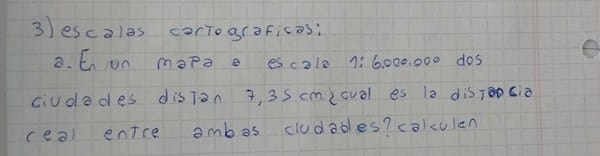 3) escalas cartograficas:
a. En un mapa e escala 1:6.000.000 dos
ciudades distan 7,35 cm ¿cual es la distancia
real entre ambas ciudades? calculen